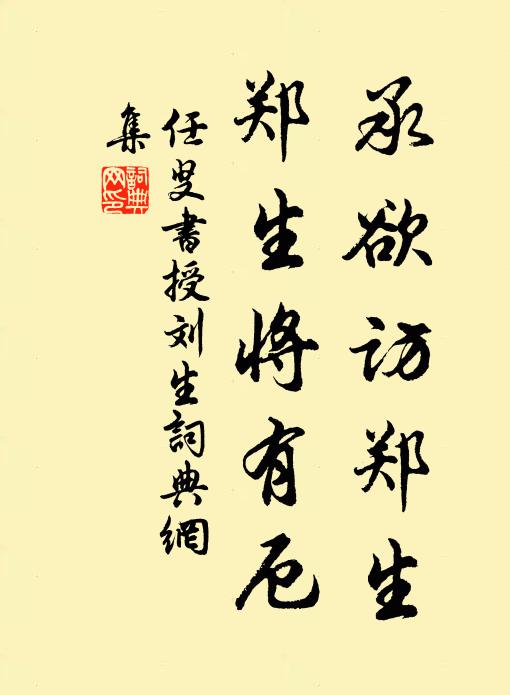 承欲访郑生
郑生将有厄
任叟書授刘生詞典網
集
詞典
网印